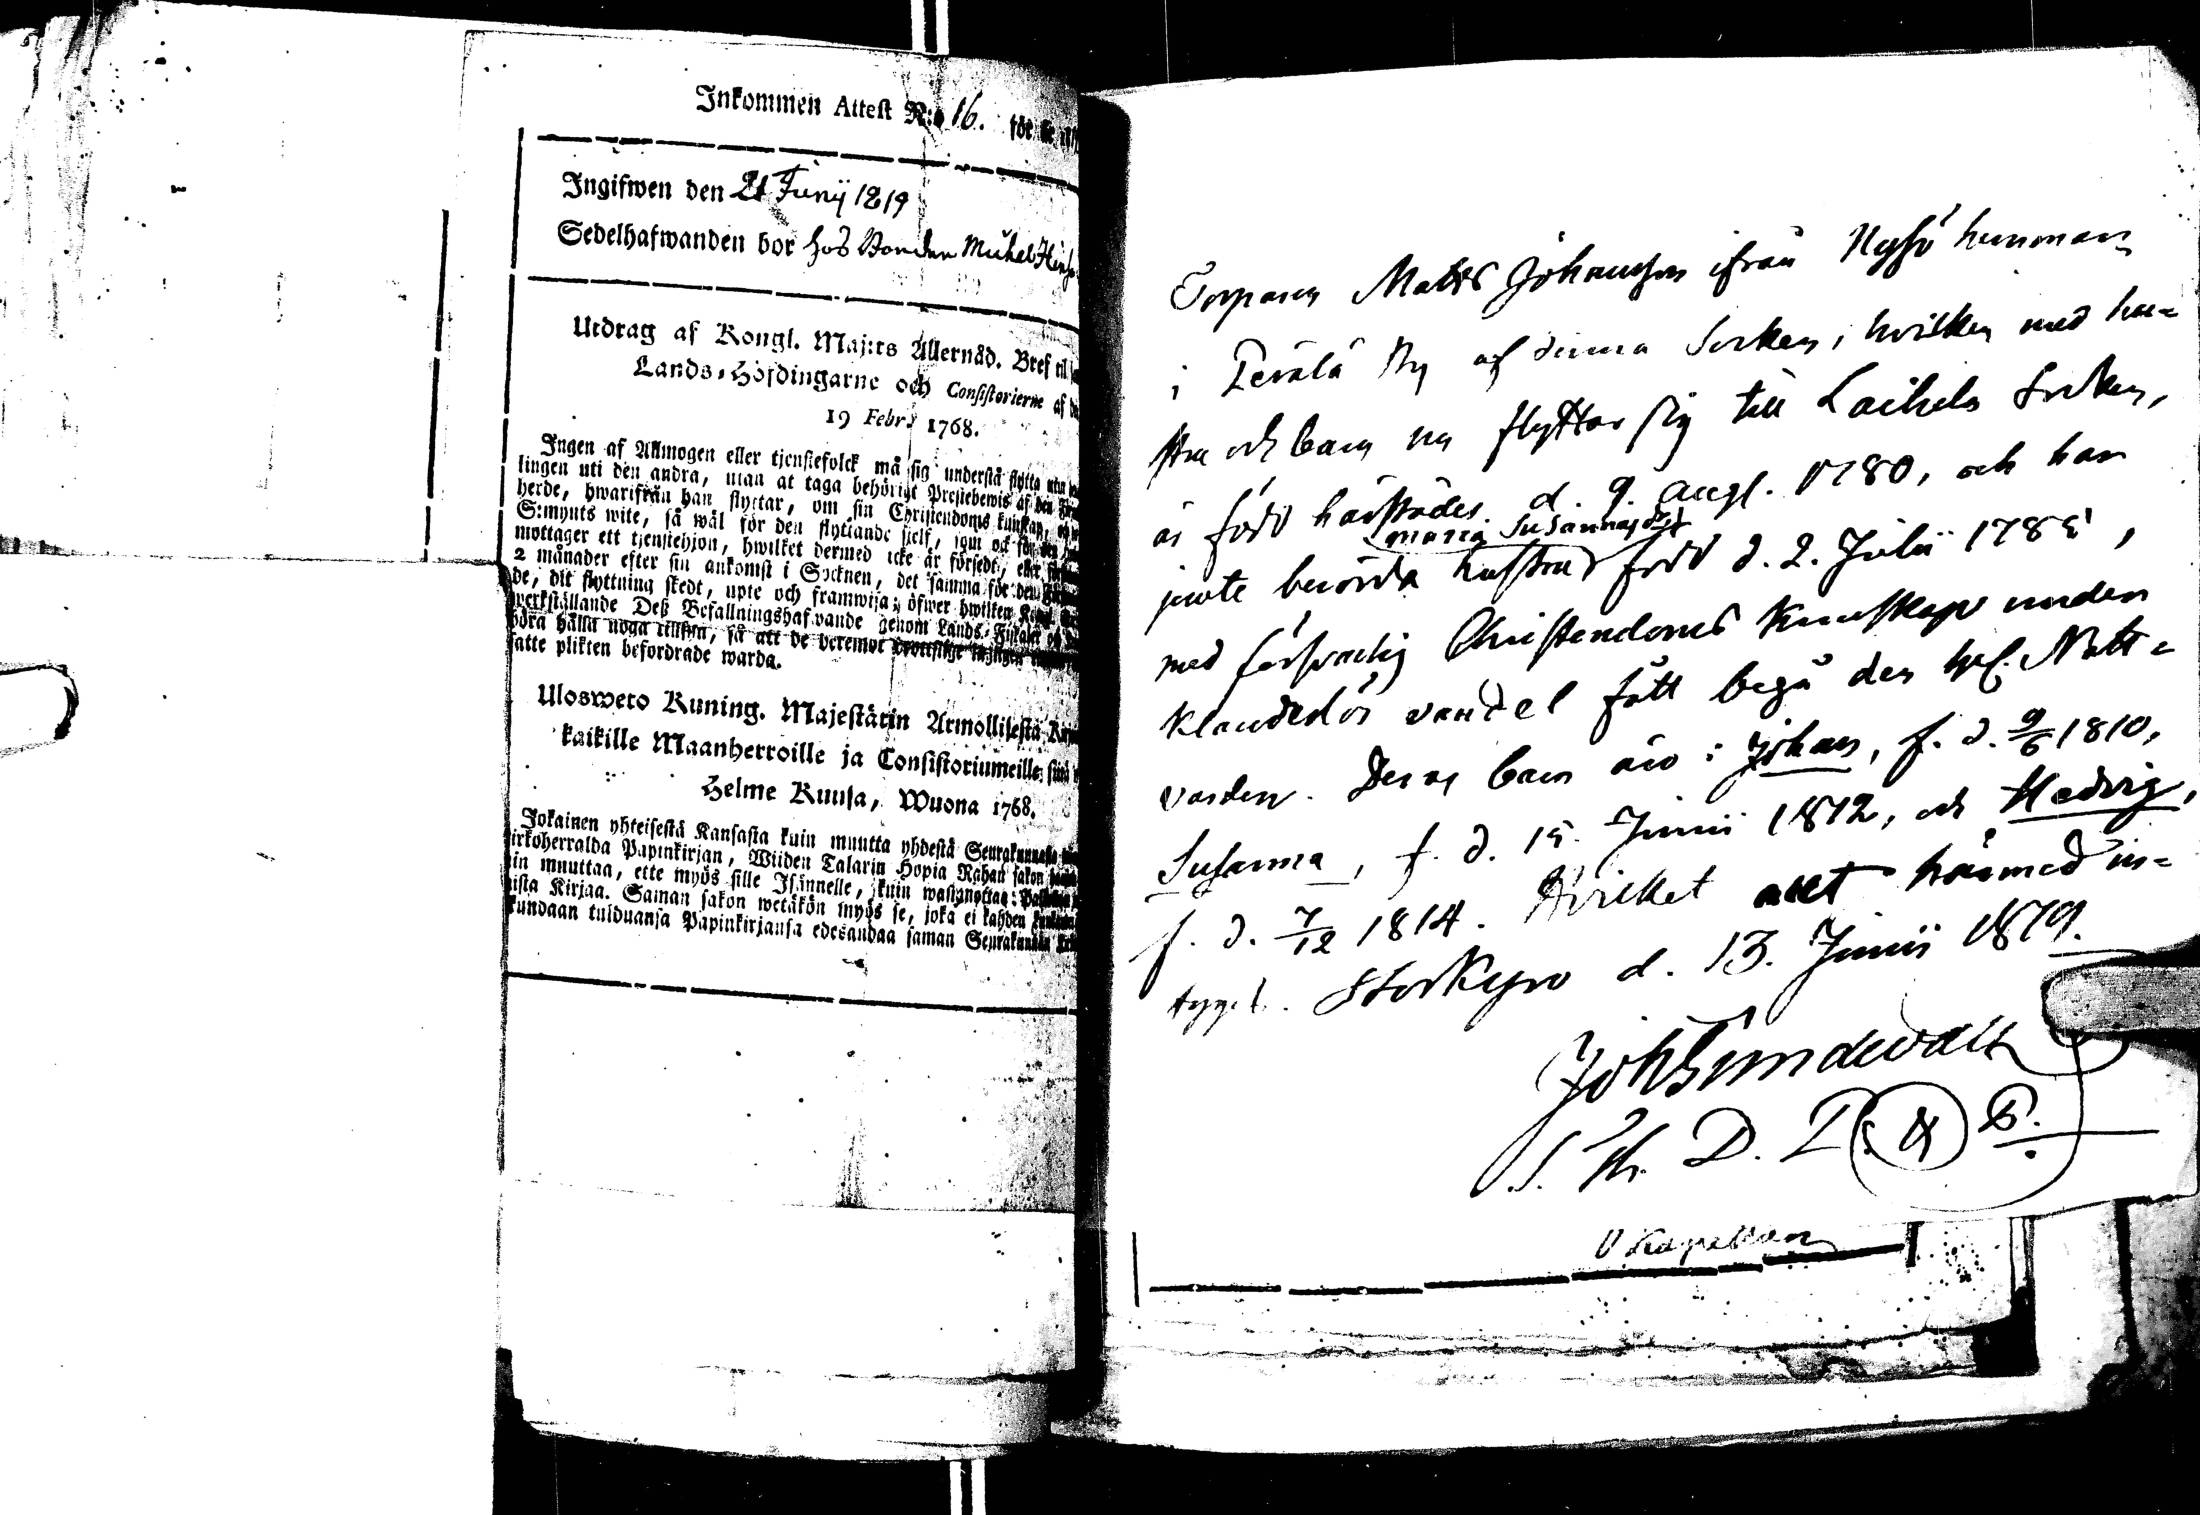 Inkommen Attest N:o 16. för
Ingifwen den 21 Junij 1819
Sedelhafwanden bor hos Bonden Michel
Utdrag af Kongl. Maj:ts Allernåd. Bref til
Lands-Höfdingarne och Consistorierne af
19 Febr. 1768.
Ingen af Allmogen eller tjenstefolck må sig understå flytta
lingen uti den andra, utan at taga behörigt Prestebewis af den
herde, hwarifrån han flyttar, om sin Christendoms kunskap,
S:mynts wite, så wäl för den flyttande sjelf, som ock för den
mottager ett tjenstehjon, hwilket dermed icke är försedt, eller
2 månader efter sin ankomst i Socknen, det samma för den
de, dit flyttning skedt, upte och framwisa; öfwer hwilken
werkställande Deß Befallningshafvande genom Lands-Fiskaler
böra hålla noga tillsyn, så att de deremot
satte plikten befordrade warda.
Ulosweto Kuning. Majestätin Armollisesta
kaikille Maanherroille ja Consistoriumeille;
Helme Kuusa, Wuona 1768.
Jokainen yhteisestä Kansasta kuin muutta yhdestä Seurakunnasta
irkoherralda Papinkirjan, Wiiden Talarin Hopia Rahan sakon
in muuttaa, ette myös sille Isännelle, kuin wastanottaa
ista Kirjaa. Saman sakon wetäkön myös se, joka ei kahden
kundaan tulduansa Papinkirjansa edesandaa saman Seurakunnan
Torparen Matts Johansson ifrån hemman
i Perälä By af denna Socken, hvilken med hu-
stru och barn nu flyttar sig till Laihela Socken,
är född härstädes d. 9. Aug. 1780, och har
Maria Susanna
jemte berörda hustru född d. 2. Julii 178
med försvarlig Christendoms Kunskap under
klanderlös vandel fått begå den h. Natt-
varden. Deras barn äro: Johan, f. d. 9/6 1810,
Susanna, f. d. 15. Junii 1812, och Hedvig,
f. d. 7/12 1814. Hvilket allt härmed in-
tygas. Storkyro d. 13. Junii 1819.
Joh Sundwall
S. Th. D. P. & P.
V Kapellan